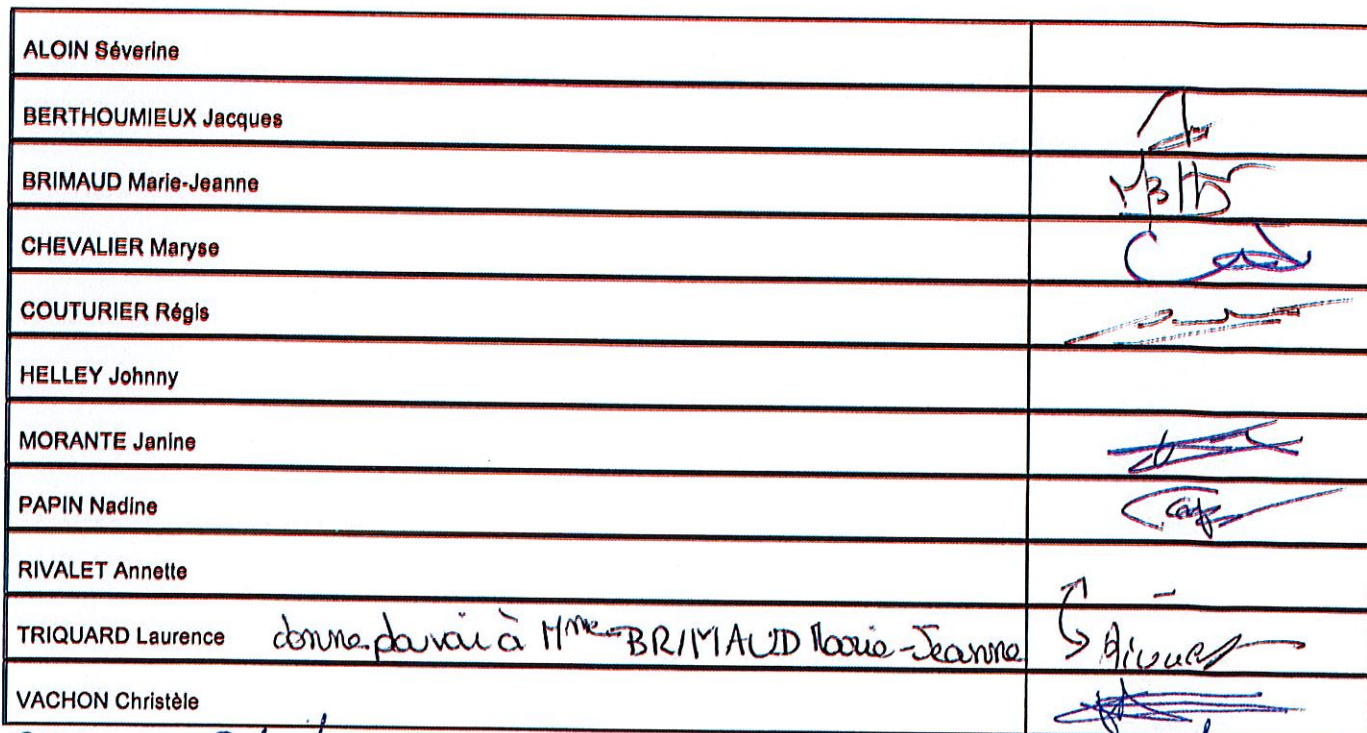 ALOIN Séverine
BERTHOUMIEUX Jacques
BRIMAUD Marie-Jeanne
CHEVALIER Maryse
COUTURIER Régis
HELLEY Johnny
MORANTE Janine
PAPIN Nadine
RIVALET Annette
TRIQUARD Laurence donne pouvoir à Mme BRIMAUD Marie-Jeanne
VACHON Christèle